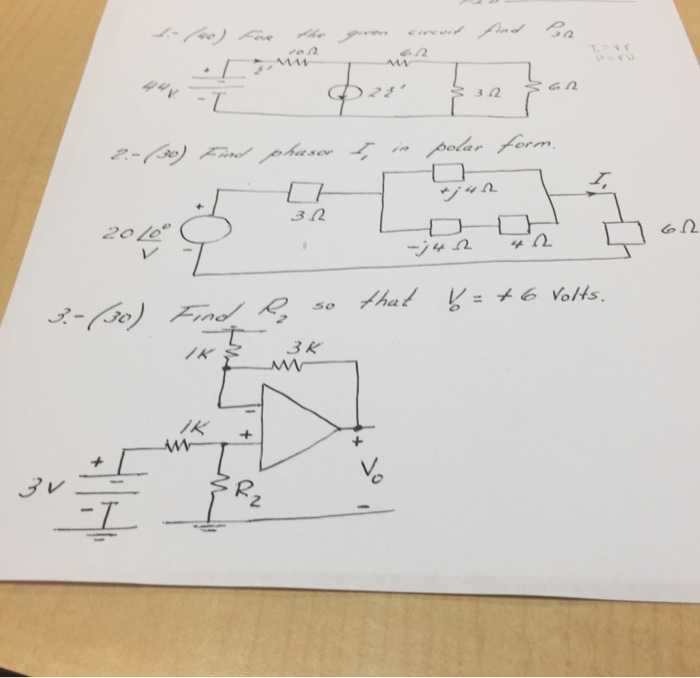 1.- (40) For the given circuit find P3Ω
10Ω 6Ω
44V. 2i 3Ω 6Ω
2.- (30) Find phasor I, in polar form.
+j4Ω I,
3Ω
20 /0° -j4Ω 4Ω 6Ω
V
3.- (30) Find R2 so that Vo = +6 Volts.
1K 3K
1K
3V R2 Vo